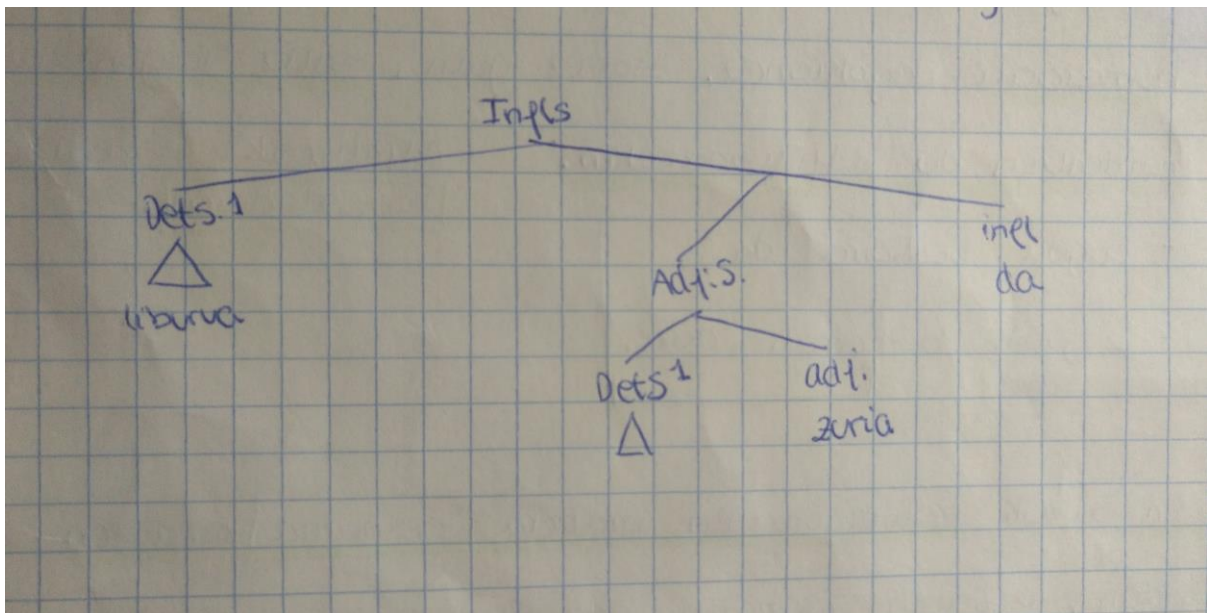 InflS
DetS.1
infl
liburua
Adj.S.
da
DetS1
adj.
zuria